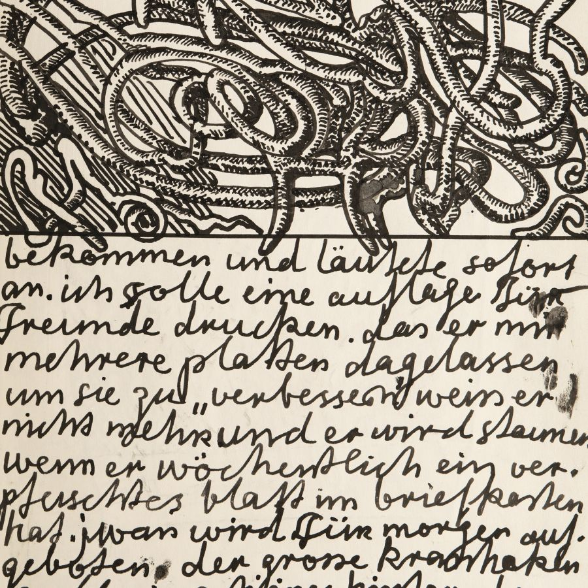 bekommen und läutete sofort
an. ich solle eine auflage für
freunde drucken. das er mir
mehrere platten dagelassen
um sie zu „verbessern" weiss er
nicht mehr und er wird staunen
wenn er wöchentlich ein ver-
pfuschtes blatt im briefkasten
hat. iwan wird für morgen auf-
geboten. der grosse